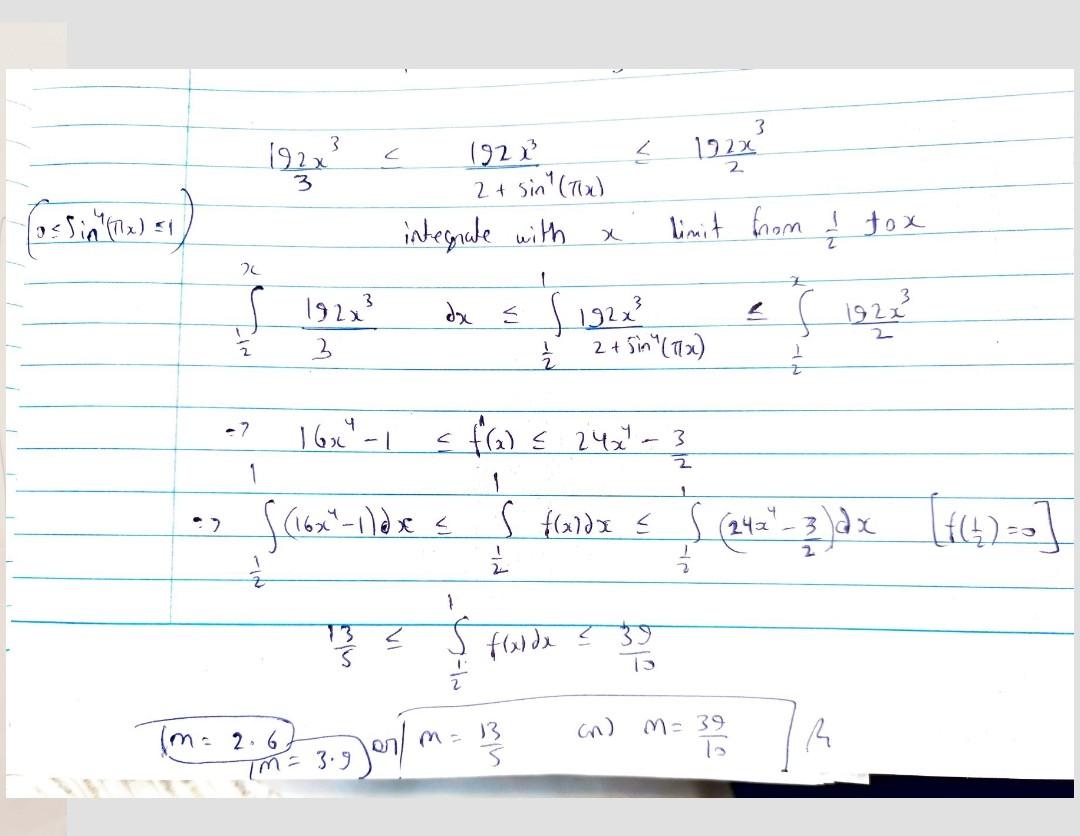 192x³/3 ≤ 192x³/(2 + sin⁴(πx)) ≤ 192x³/2
(0 ≤ Sin⁴(πx) ≤ 1)
integrate with x limit from 1/2 to x
∫_{1/2}^{x} 192x³/3 dx ≤ ∫_{1/2}^{1} 192x³/(2 + Sin⁴(πx)) ≤ ∫_{1/2}^{x} 192x³/2
=> 16x⁴ - 1 ≤ f(x) ≤ 24x⁴ - 3/2
=> ∫_{1/2}^{1} (16x⁴ - 1)dx ≤ ∫_{1/2}^{1} f(x)dx ≤ ∫_{1/2}^{1} (24x⁴ - 3/2)dx [f(1/2) = 0]
13/5 ≤ ∫_{1/2}^{1} f(x)dx ≤ 39/10
m = 2.6 or m = 13/5 M = 39/10
m = 3.9